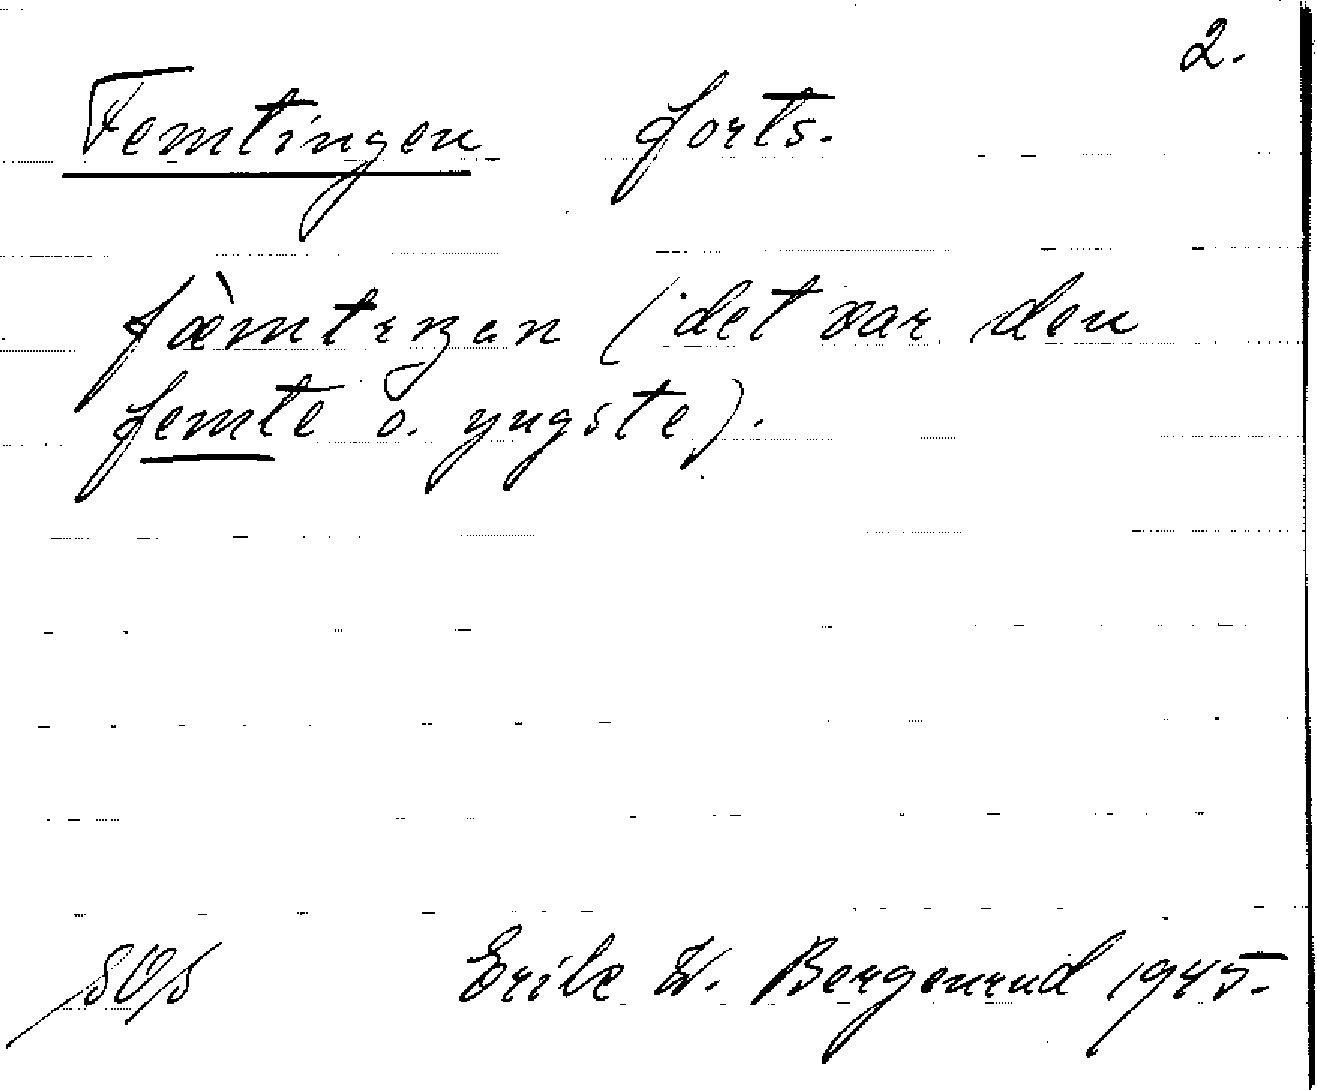 2.
Femtingen forts.
fæ̀mtɩŋɛn (det var den
femte o. yngste).
Erik W. Bergenrud 1945.